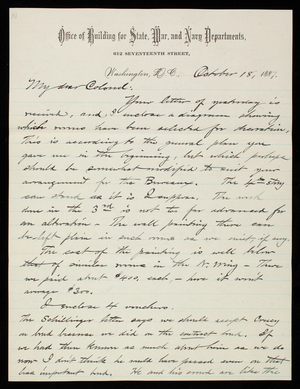 Office of Building for State, War, and Navy Departments,
612 SEVENTEENTH STREET,
Washington, D.C. October 18, 1887.
My dear Colonel:
Your letter of yesterday is
received, and I enclose a diagram showing
which rooms have been selected for decoration.
This is according to the mural plan you
gave me in the beginning, but which perhaps
should be somewhat modified to suit your
arrangement for the Bureaus. The 4th story
can stand as it is I suppose. The work
done in the 3rd is not too far advanced for
an alteration. The wall painting there can
be kept plain in such rooms as we omit, if any.
The cost of the painting is well below
that of similar rooms in the N. Wing - There
we paid about $400. each - here it won't
average $300.
I enclose 4 vouchers.
The Schillinger letter says we should accept Craney
on bond because we did on the contract bond. If
we had then known as much about him as we do
now I don't think he would have passed even on that
less important bond. He and his bond are like the